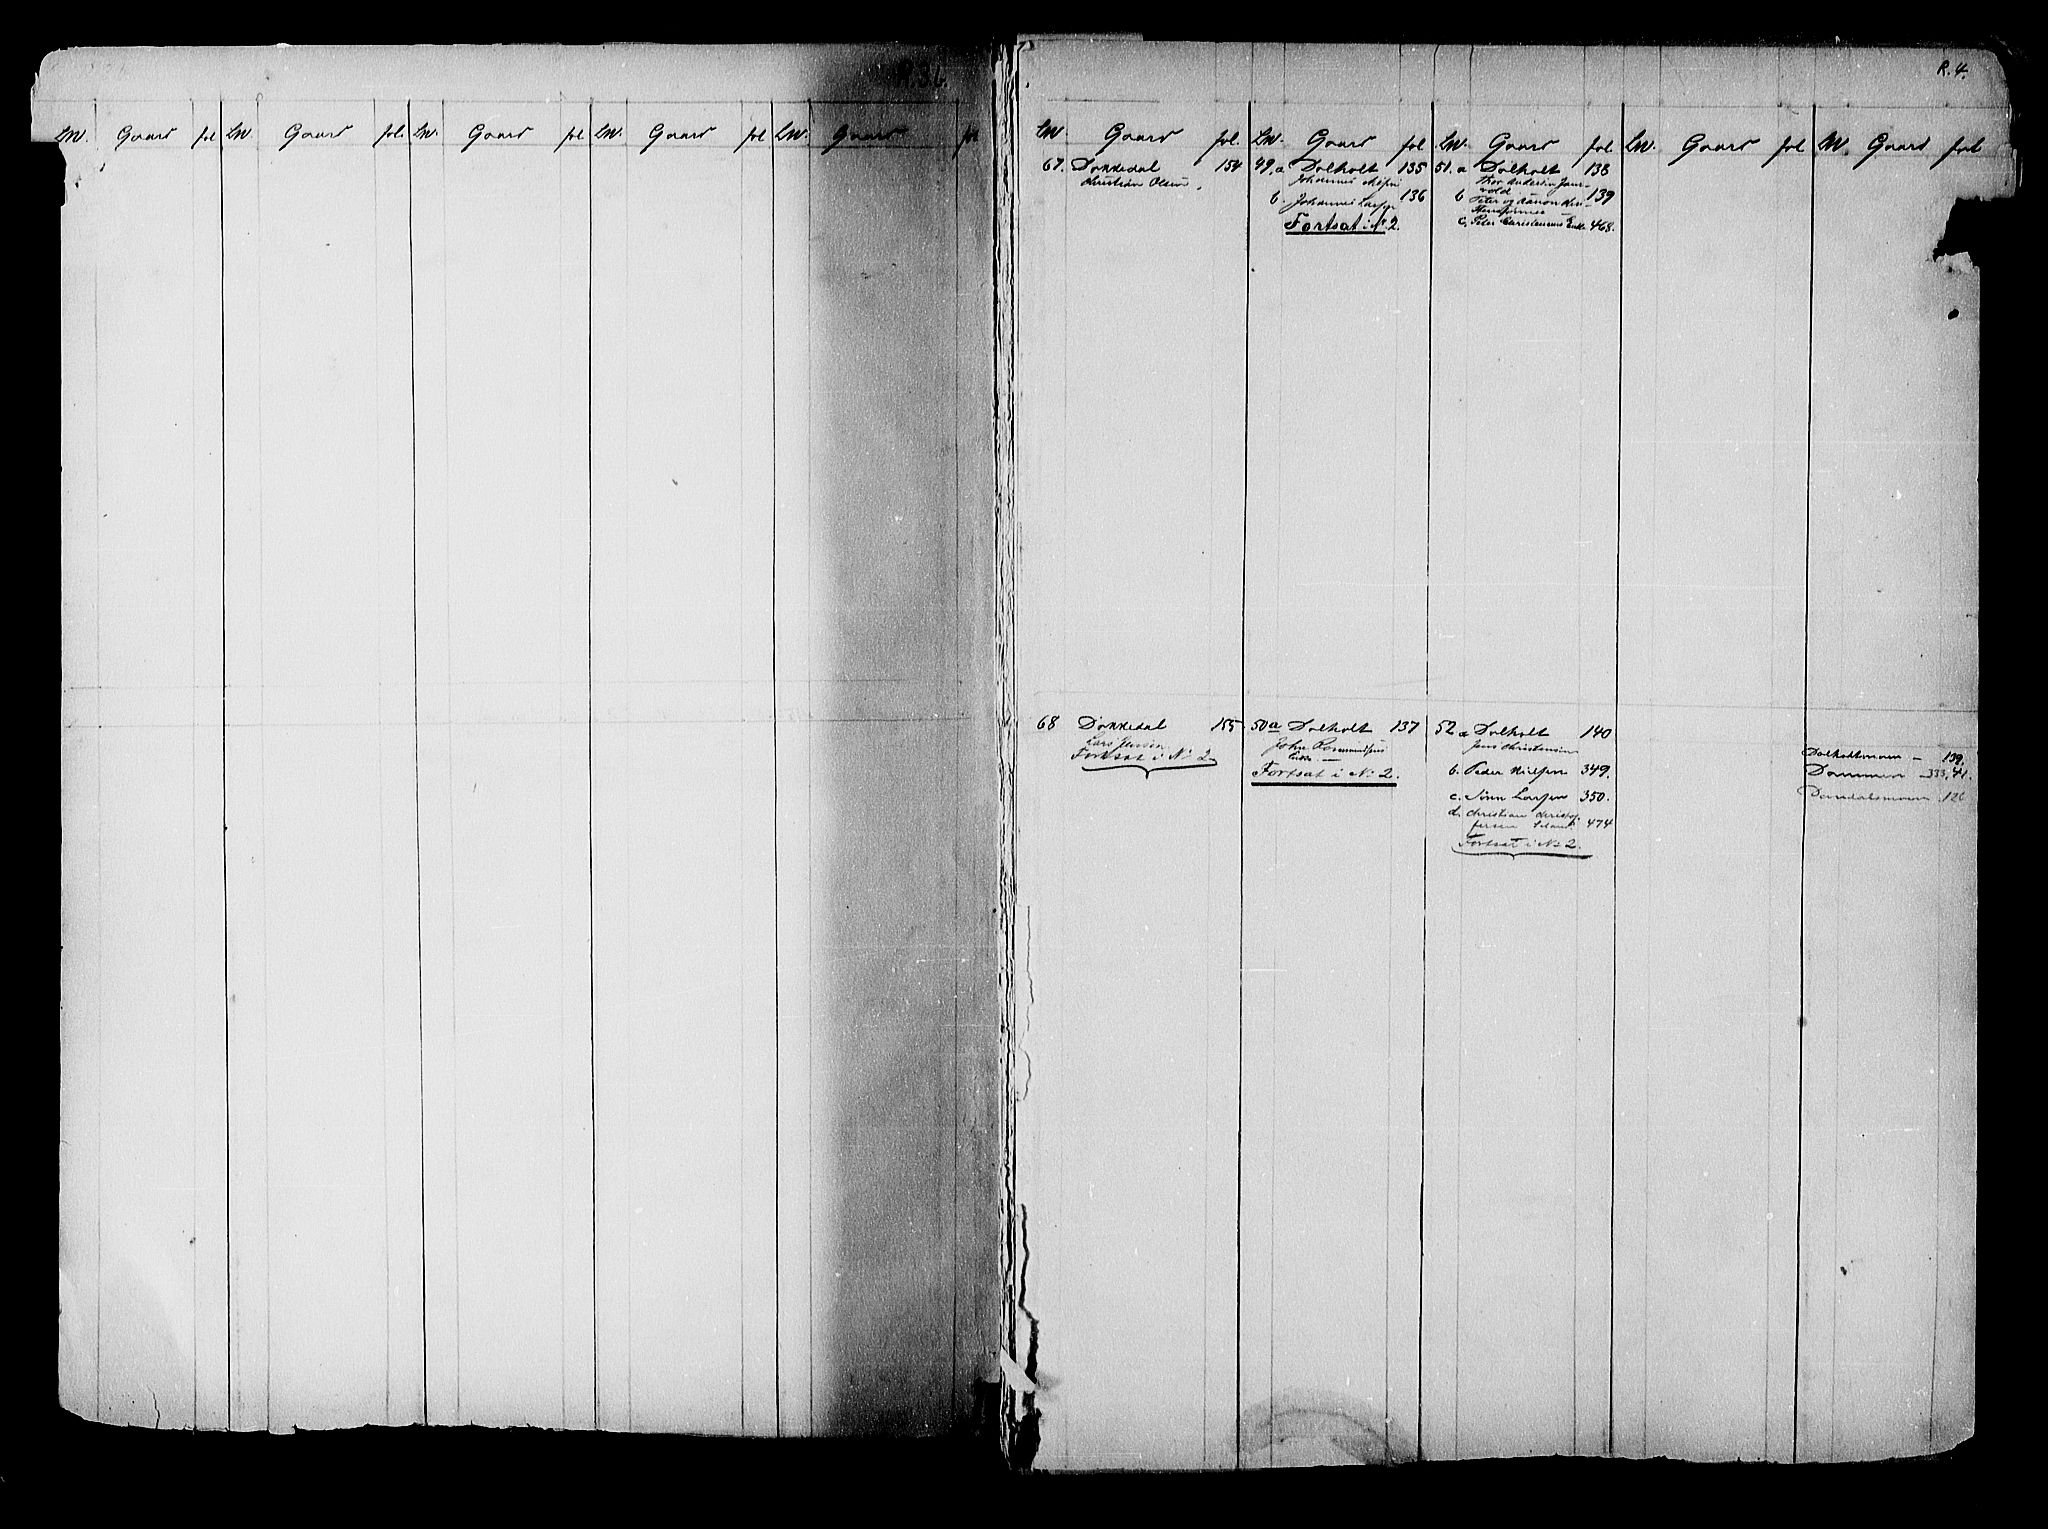 R. 3 b.
LN. Gaard fol LN. Gaard fol. LN. Gaard fol LN. Gaard fol LN. Gaard fol
R. 4.
LN. Gaard fol. LN. Gaard fol LN. Gaard fol. LN. Gaard fol LN. Gaard fol
67. Dokkedal 154
Christian Olsen
49, a Dolholt 135
Johannes
b. Johannes Larsen 136
Fortsat i N: 2.
51. a Dolholt 138
Thor Andersen
b Peter og 139
c, Peter Christensens Enke 468.
68 Dokkedal 155
Lars Jensen
Fortsat i N: 2
50 a Dolholt 137
John
Enke
Fortsat i N: 2.
52 a Dolholt 140
Jens Christensen
b. Peder Nielsen 349.
c. Larsen 350.
d. Christian Christof
fersen 474
Fortsat i N: 2.
Dolholtmoen 139.
Dammen 333, 41.